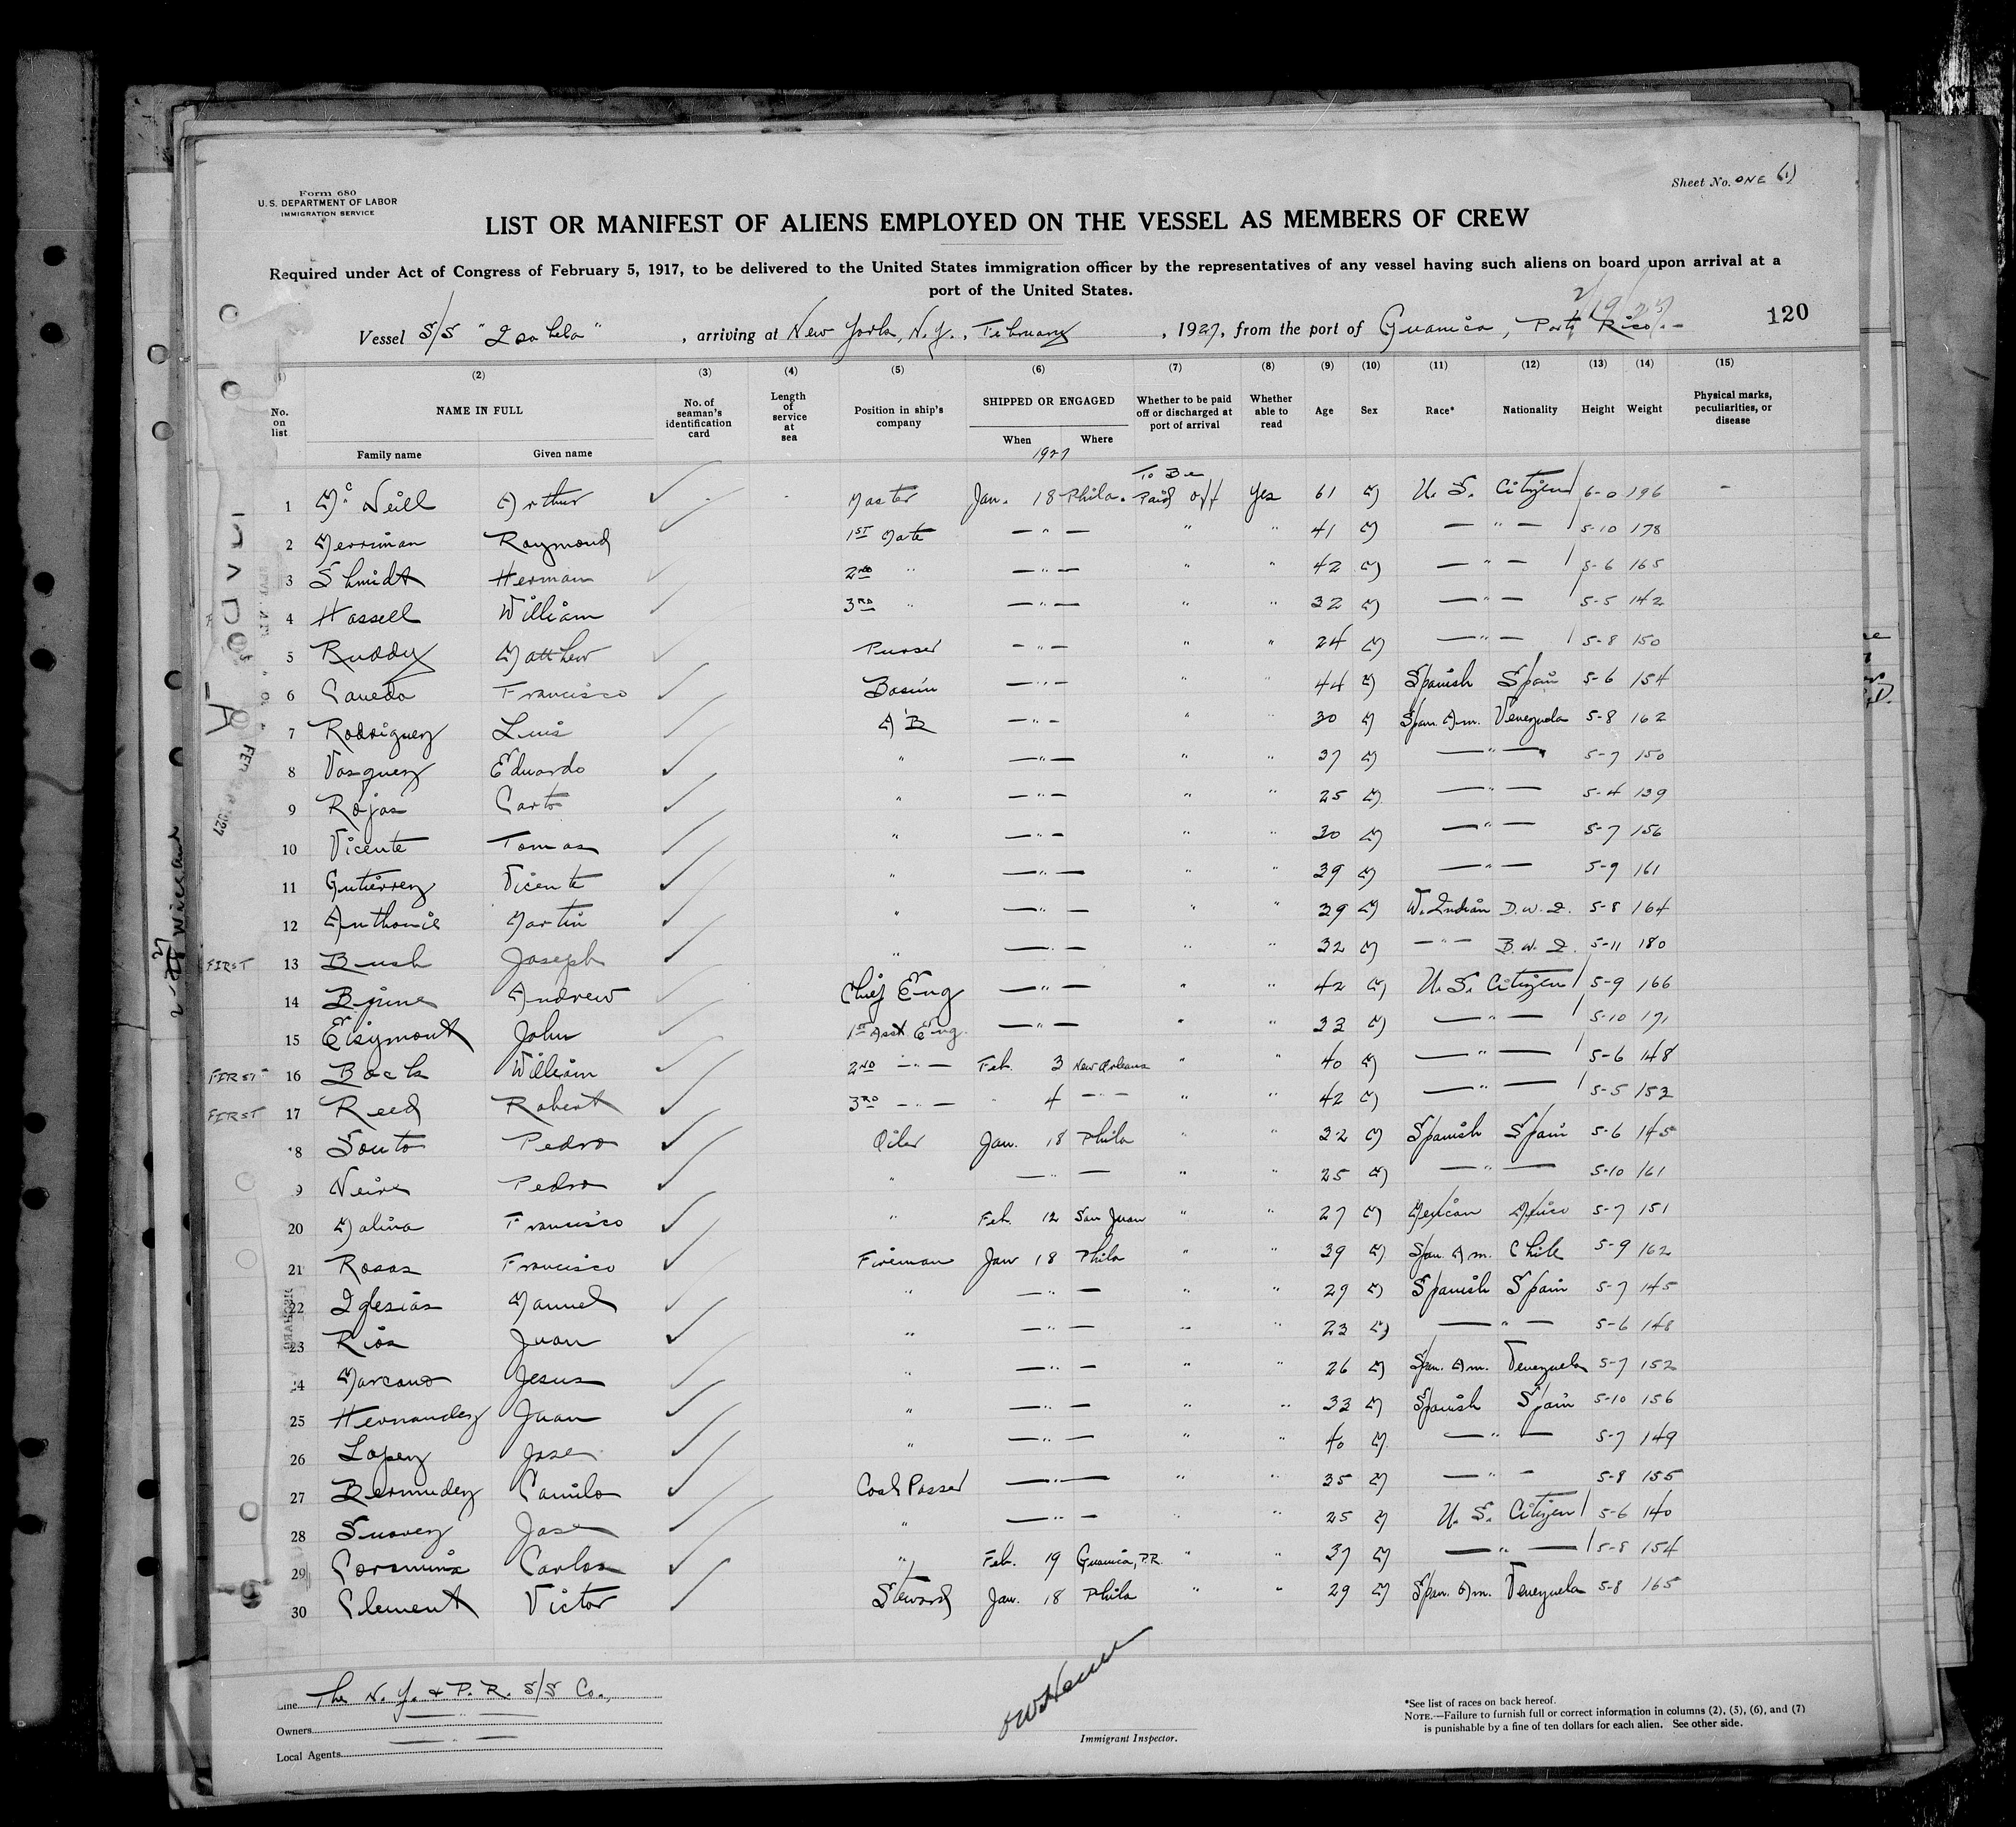 Form 680
U. S. DEPARTMENT OF LABOR
IMMIGRATION SERVICE
Sheet No. ONE (1)
LIST OR MANIFEST OF ALIENS EMPLOYED ON THE VESSEL AS MEMBERS OF CREW
Required under Act of Congress of February 5, 1917, to be delivered to the United States immigration officer by the representatives of any vessel having such aliens on board upon arrival at a
port of the United States.
2/19/27
120
Vessel S/S "Isabela", arriving at New York, N.Y., February, 1927, from the port of Guanica, Porto Rico.-
(1) (2) (3) (4) (5) (6) (7) (8) (9) (10) (11) (12) (13) (14) (15)
No. on list NAME IN FULL Family name Given name No. of seaman's identification card Length of service at sea Position in ship's company SHIPPED OR ENGAGED When Where Whether to be paid off or discharged at port of arrival Whether able to read Age Sex Race* Nationality Height Weight Physical marks, peculiarities, or disease
1927
1 McNeill Arthur Master Jan. 18 Phila. To Be Paid off Yes 61 M U. S. Citizen 6-0 196 -
2 Merriman Raymond 1st Mate — " — " " 41 M — " — 5-10 178
3 Shmidt Herman 2nd " — " — " " 42 M — " — 5-6 165
4 Hassell William 3rd " — " — " " 32 M — " — 5-5 142
5 Ruddy Matthew Purser — " — " " 24 M — " — 5-8 150
6 Canedo Francisco Bosun — " — " " 44 M Spanish Spain 5-6 154
7 Rodriguez Luis AB — " — " " 30 M Span. Am. Venezuela 5-8 162
8 Vasquez Eduardo " — " — " " 37 M — " — 5-7 150
9 Rojas Carto " — " — " " 25 M — " — 5-4 139
10 Vicente Tomas " — " — " " 30 M — " — 5-7 156
11 Gutierrez Vicente " — " — " " 39 M — " — 5-9 161
12 Anthonie Martin " — " — " " 39 M W. Indian D. W. I. 5-8 164
FIRST 13 Bush Joseph " — " — " " 32 M — " — B. W. I. 5-11 180
14 Bjune Andrew Chief Eng — " — " " 42 M U. S. Citizen 5-9 166
15 Eisymont John 1st Asst Eng. — " — " " 33 M — " — 5-10 171
FIRST 16 Bock William 2nd — " — Feb. 3 New Orleans " " 40 M — " — 5-6 148
FIRST 17 Reed Robert 3rd — " — " 4 — " — " " 42 M — " — 5-5 153
18 Souto Pedro Oiler Jan. 18 Phila " " 32 M Spanish Spain 5-6 145
19 Neira Pedro " — " — " " 25 M — " — 5-10 161
20 Molina Francisco " Feb. 12 San Juan " " 27 M Mexican Mexico 5-7 151
21 Rosas Francisco Fireman Jan 18 Phila " " 39 M Span. Am. Chile 5-9 162
22 Iglesias Manuel " — " — " " 29 M Spanish Spain 5-7 145
23 Rios Juan " — " — " " 23 M — " — 5-6 148
24 Marcano Jesus " — " — " " 26 M Span. Am. Venezuela 5-7 152
25 Hernandez Juan " — " — " " 33 M Spanish Spain 5-10 156
26 Lopez Jose " — " — " " 40 M — " — 5-7 149
27 Bermudez Camilo Coal Passer — " — " " 35 M — " — 5-8 155
28 Suarez Jose " — " — " " 25 M U. S. Citizen 5-6 140
29 Coramina Carlos " Feb. 19 Guanica, P.R. " " 37 M — " — 5-8 154
30 Clement Victor Steward Jan. 18 Phila " " 29 M Span. Am. Venezuela 5-8 165
Line The N. Y. & P. R. S/S Co.,
Owners — " —
Local Agents — " —
Immigrant Inspector.
*See list of races on back hereof.
NOTE.—Failure to furnish full or correct information in columns (2), (5), (6), and (7)
is punishable by a fine of ten dollars for each alien. See other side.